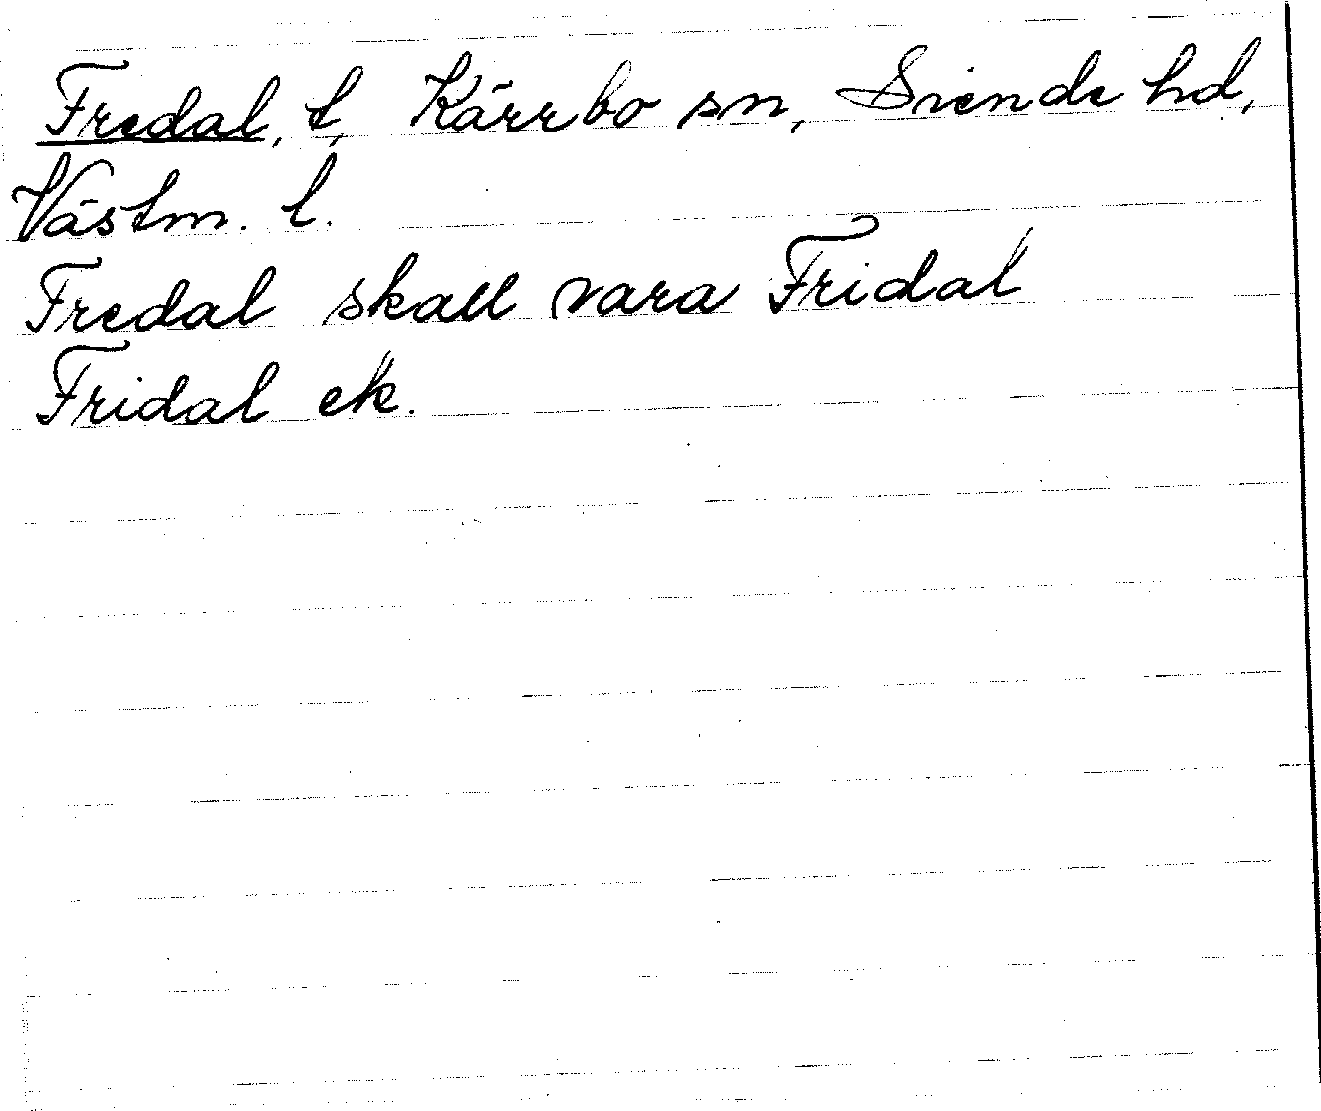 Fredal, t, Kärrbo sn, Siende hd,
Västm. l.
Fredal skall vara Fridal
Fridal ek.